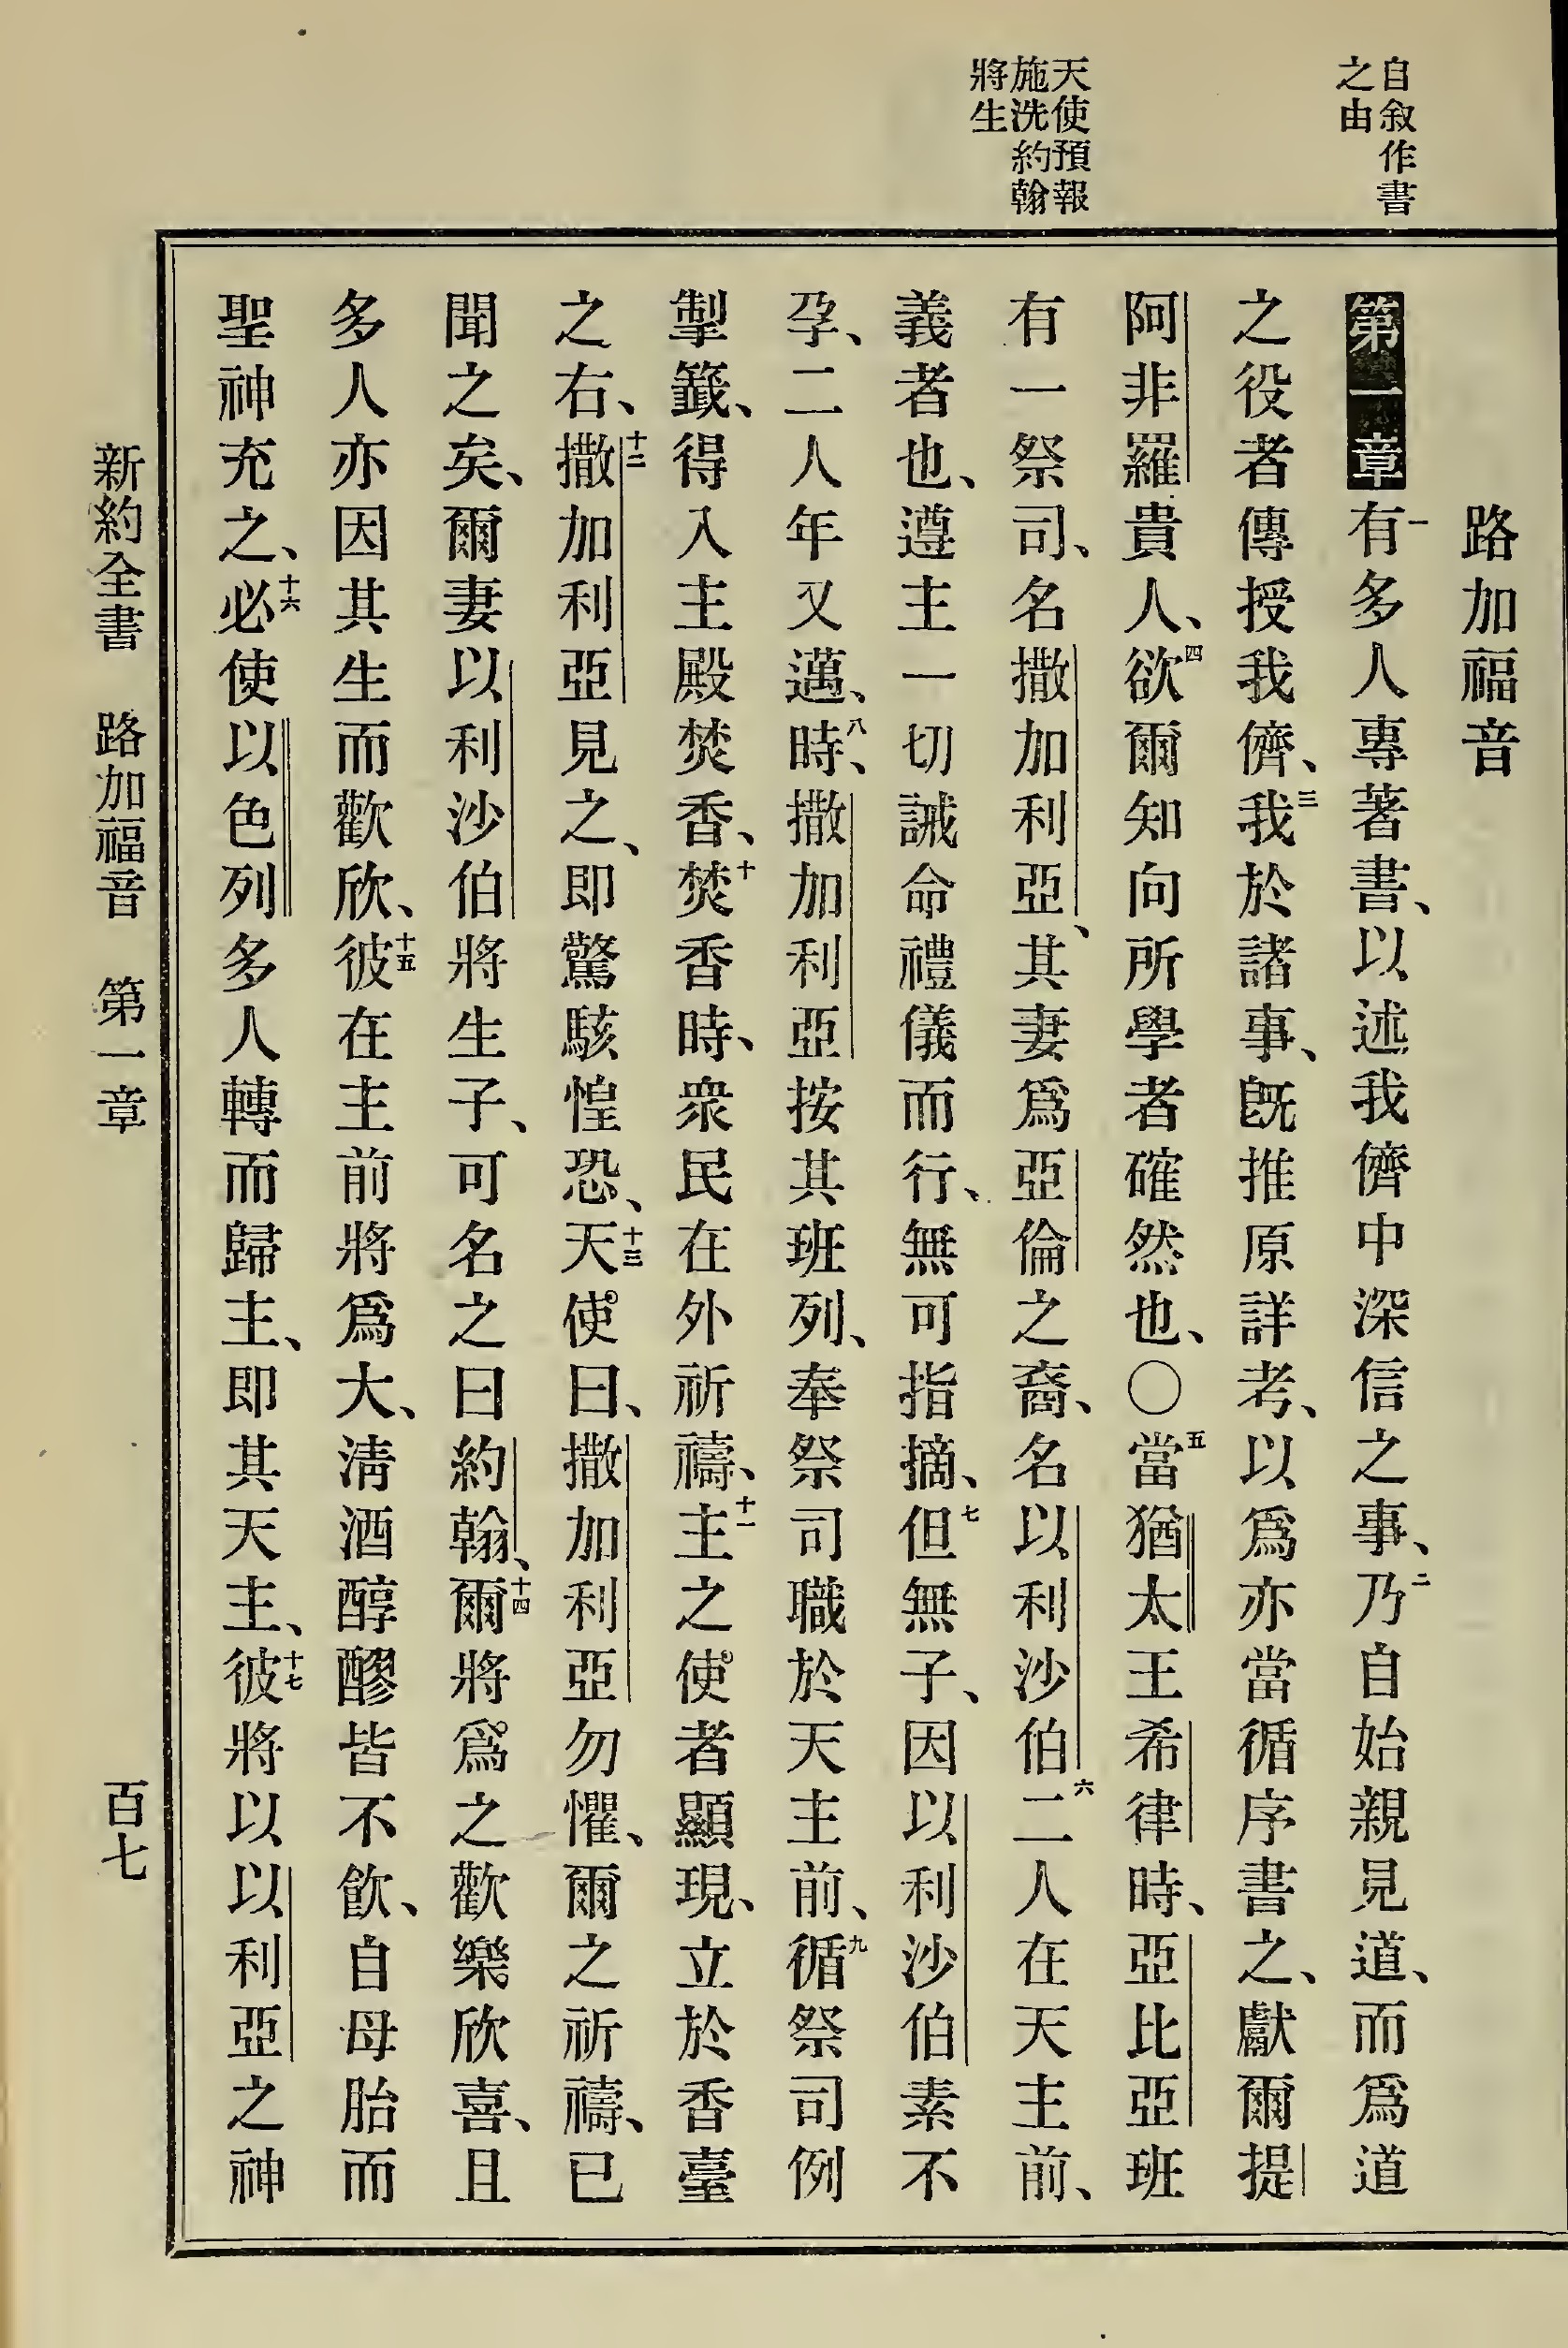 自敘作書
之由
天使預報
施洗約翰
將生
路加福音
第一章一有多人專著書、以述我儕中深信之事、二乃自始親見道、而爲道
之役者傳授我儕、三我於諸事、旣推原詳考、以爲亦當循序書之、獻爾提
阿非羅貴人、四欲爾知向所學者確然也、〇五當猶太王希律時、亞比亞班
有一祭司、名撒加利亞、其妻爲亞倫之裔、名以利沙伯六二人在天主前、
義者也、遵主一切誡命禮儀而行、無可指摘、七但無子、因以利沙伯素不
孕、二人年又邁、八時、撒加利亞按其班列、奉祭司職於天主前、九循祭司例
掣籤、得入主殿焚香、十焚香時、衆民在外祈禱、十一主之使者顯現、立於香臺
之右、十二撒加利亞見之、即驚駭惶恐、十三天使曰、撒加利亞勿懼、爾之祈禱、已
聞之矣、爾妻以利沙伯將生子、可名之曰約翰、十四爾將爲之歡樂欣喜、且
多人亦因其生而歡欣、十五彼在主前將爲大、淸酒醇醪皆不飮、自母胎而
聖神充之、十六必使以色列多人轉而歸主、即其天主、十七彼將以以利亞之神
新約全書 路加福音 第一章 百七